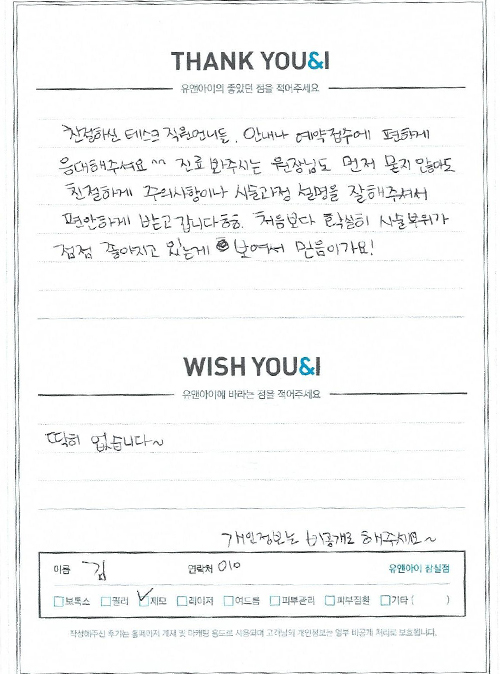 THANK YOU&I
유앤아이의 좋았던 점을 적어주세요
친절하신 데스크 직원언니들, 안내나 예약접수에 편하게
응대해주셔요^^ 진료 봐주시는 원장님도 먼저 묻지 않아도
친절하게 주의사항이나 시술과정 설명을 잘해주셔서
편안하게 받고갑니다ㅎㅎ. 처음보다 확실히 시술부위가
점점 좋아지고 있는게 보여서 믿음이가요!
WISH YOU&I
유앤아이에 바라는 점을 적어주세요
딱히 없습니다~
개인정보는 비공개로 해주세요~
이름 김 연락처 010 유앤아이 잠실점
보톡스 필러 제모 레이저 여드름 피부관리 피부질환 기타 ( )
작성해주신 후기는 홈페이지 게재 및 마케팅 용도로 사용되며 고객님의 개인정보는 일부 비공개 처리로 보호됩니다.